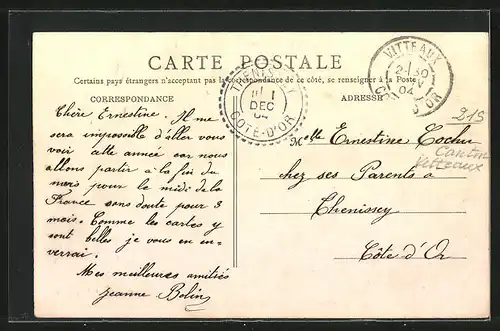 CARTE POSTALE
Certains pays étrangers n'acceptant pas la correspondance de ce côté, se renseigner à la Poste
CORRESPONDANCE
ADRESSE
VITTEAUX
2-30
04
COTE D'OR
1
DEC
04
COTE-D'OR
215
Chère Ernestine. Il me
sera impossible d'aller vous
voir cette année car nous
allons partir à la fin du
mois pour le midi de la
France sans doute pour 3
mois. Comme les cartes y
sont belles je vous en en-
verrai.
Mes meilleures amitiés
Jeanne Belin
Melle Ernestine Cochu
Canton
Vitteaux
chez ses Parents à
Chenissey
Côte d'Or